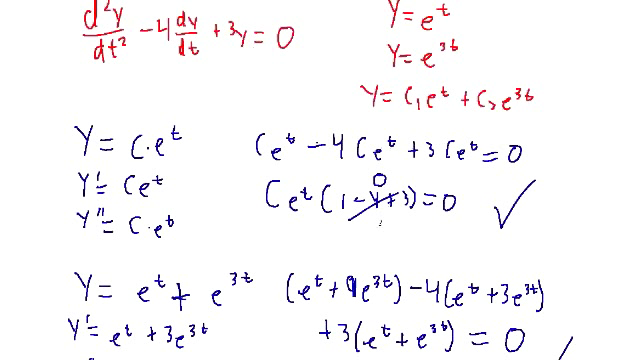 d²y/dt² - 4 dy/dt + 3y = 0
y = e^t
y = e^{3t}
y = c₁e^t + c₂e^{3t}
y = C·e^t
Ce^t - 4Ce^t + 3Ce^t = 0
y' = Ce^t
Ce^t(1-4+3) = 0
0
y'' = C·e^t
y = e^t + e^{3t}
(e^t + 9e^{3t}) - 4(e^t + 3e^{3t})
y' = e^t + 3e^{3t}
+3(e^t + e^{3t}) = 0